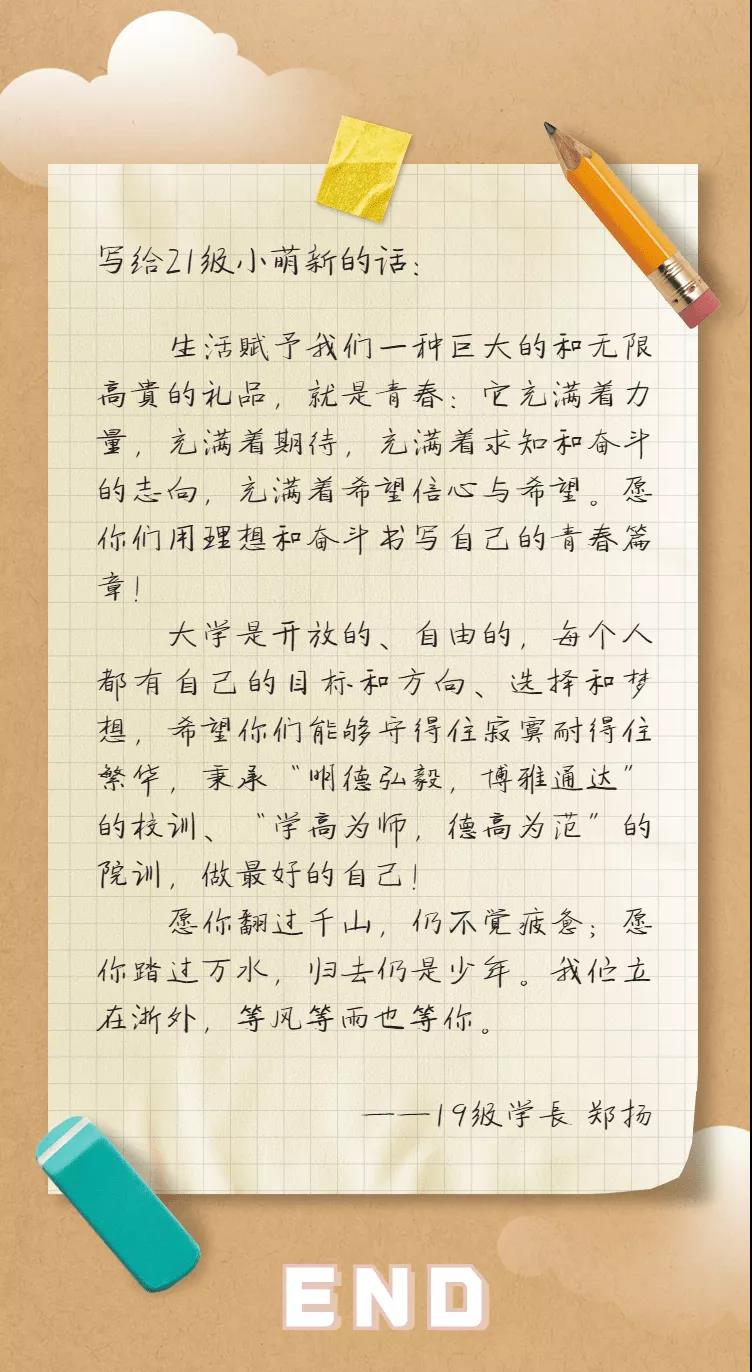 写给21级小萌新的话：
生活赋予我们一种巨大的和无限
高貴的礼品，就是青春：它充满着力
量，充满着期待，充满着求知和奋斗
的志向，充满着希望信心与希望。愿
你们用理想和奋斗书写自己的青春篇
章！
大学是开放的、自由的，每个人
都有自己的目标和方向、选择和梦
想，希望你们能够守得住寂寞耐得住
繁华，秉承“明德弘毅，博雅通达”
的校训、“学高为师，德高为范”的
院训，做最好的自己！
愿你翻过千山，仍不觉疲惫；愿
你踏过万水，归去仍是少年。我伫立
在浙外，等风等雨也等你。
——19级学長 郑扬
END